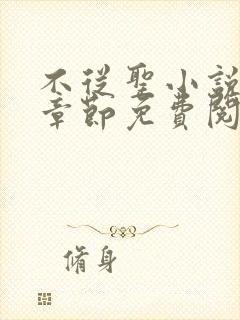 不從聖小說
章節免費閱
脩身